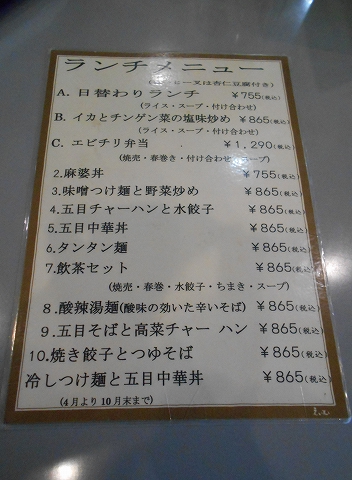 ランチメニュー
(コーヒー又は杏仁豆腐付き)
A. 日替わりランチ ¥755(税込)
(ライス・スープ・付け合わせ)
B. イカとチンゲン菜の塩味炒め ¥865(税込)
(ライス・スープ・付け合わせ)
C. エビチリ弁当 ¥1,290(税込)
(焼売・春巻き・付け合わせ・スープ)
2.麻婆丼 ¥755(税込)
3.味噌つけ麺と野菜炒め ¥865(税込)
4.五目チャーハンと水餃子 ¥865(税込)
5.五目中華丼 ¥865(税込)
6.タンタン麺 ¥865(税込)
7.飲茶セット ¥865(税込)
(焼売・春巻・水餃子・ちまき・スープ)
8.酸辣湯麺(酸味の効いた辛いそば) ¥865(税込)
9.五目そばと高菜チャー ハン ¥865(税込)
10.焼き餃子とつゆそば ¥865(税込)
冷しつけ麺と五目中華丼 ¥865(税込)
(4月より10月末まで)